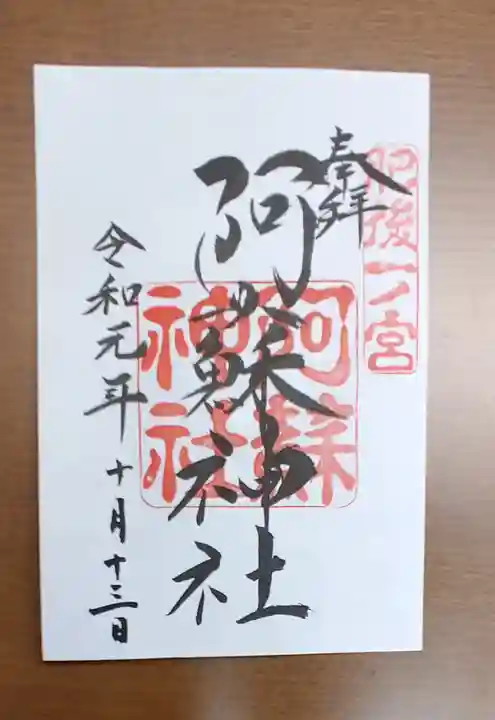 肥後一ノ宮
奉拝
阿蘇神社
阿蘇神社
令和元年十月十三日